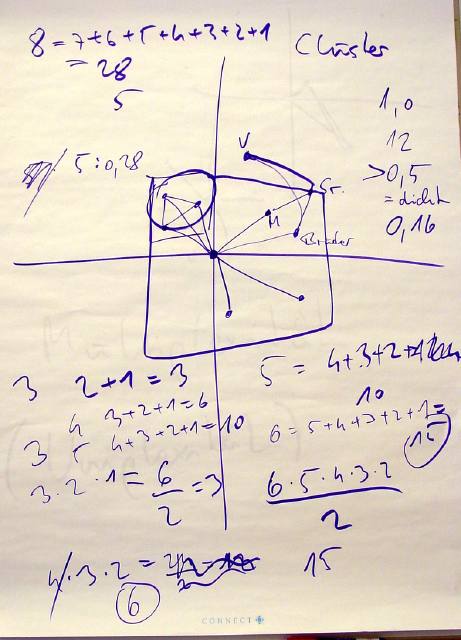 8 = 7+6+5+4+3+2+1
= 28
5
Cluster
1,0
12
>0,5
= dicht
0,16
5:0,28
V
Sr.
M
Bruder
3 2+1=3
4 3+2+1=6
3 5 4+3+2+1=10
3·2·1= 6/2 =3
4·3·2 =
6
5 = 4+3+2+1
10
6 = 5+4+3+2+1=
15
6·5·4·3·2
2
15
CONNECT